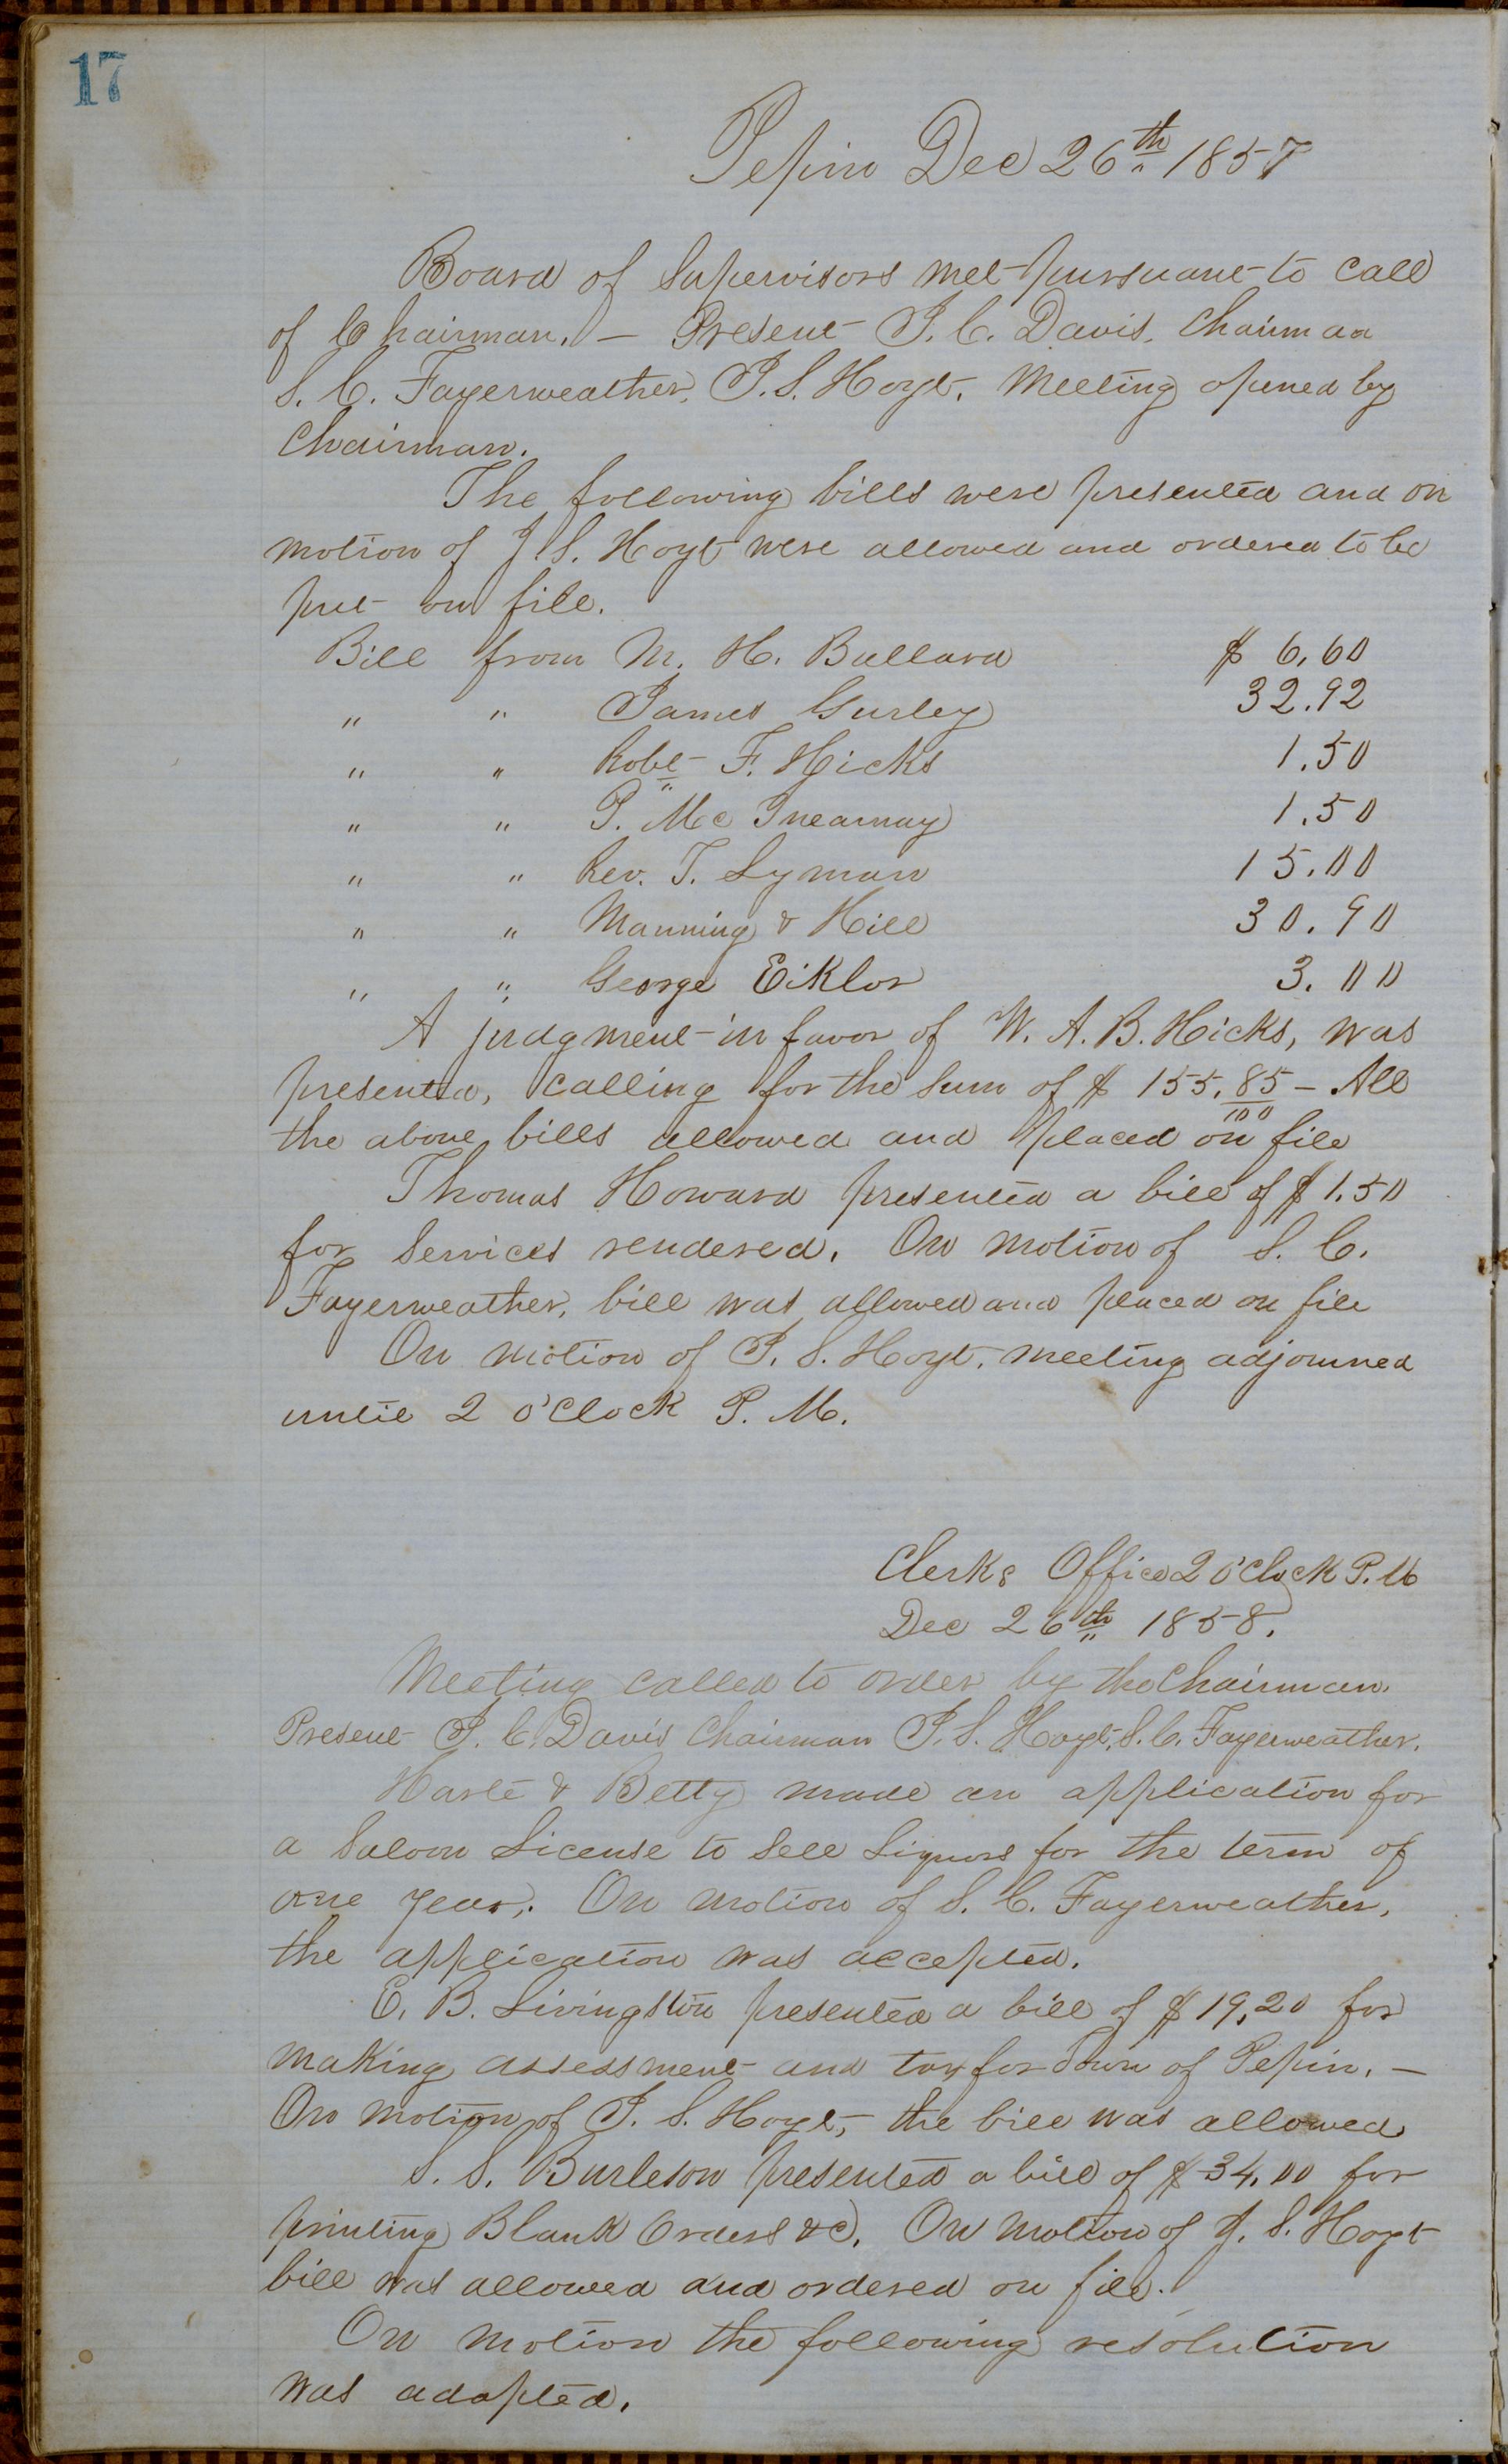 17
Pepin Dec 26th 1857
Board of Supervisors met pursuant to call
of Chairman. — Present J. C. Davis, Chairman
S. C. Fayerweather, J. S. Hoyt. Meeting opened by
Chairman.
The following bills were presented and on
motion of J. S. Hoyt were allowed and ordered to be
put on file.
Bill from M. H. Bullard $ 6.60
" " James Gurley 32.92
" " Robt F. Hicks 1.50
" " P. Mc Inearnay 1.50
" " Rev. T. Lyman 15.00
" " Manning & Hill 30.90
" " George Eiklor 3.00
A judgment in favor of W. A. B. Hicks, was
presented, calling for the sum of $ 155.85/100 — All
the above bills allowed and placed on file
Thomas Howard presented a bill of $ 1.50
for services rendered. On motion of S. C.
Fayerweather, bill was allowed and placed on file
On motion of J. S. Hoyt, meeting adjourned
until 2 o'Clock P. M.
Clerks Office 2 o'Clock P. M
Dec 26th 1858.
Meeting called to order by the Chairman.
Present J. C. Davis Chairman J. S. Hoyt, S. C. Fayerweather.
Harle & Betty made an application for
a Saloon License to sell Liquors for the term of
one year. On motion of S. C. Fayerweather,
the application was accepted.
E. B. Livingston presented a bill of $ 19,20 for
making assessment and tax for Town of Pepin. —
On motion of J. S. Hoyt, the bill was allowed
S. S. Burleson presented a bill of $ 34.00 for
printing Blank Orders &c. On motion of J. S. Hoyt
bill was allowed and ordered on file.
On motion the following resolution
was adopted.